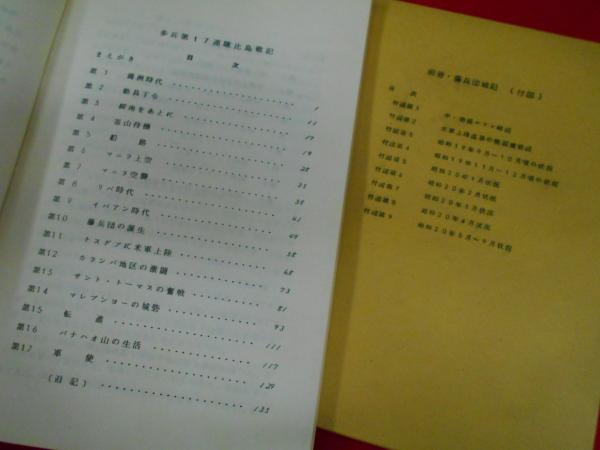 歩兵第17連隊比島戦記
目 次
まえがき
第1 満洲時代 1
第2 動員下令 11
第3 17
第4 釜山待機 19
第5 船路 28
第6 マニラ上空 33
第7 マニラ空襲 35
第8 リパ時代 38
第9 イバアン時代 41
第10 藤兵団の誕生 49
第11 ナスグブに米軍上陸 58
第12 カランバ地区の激闘 68
第13 サント・トーマスの奮戦 73
第14 マレプンヨーの城砦 81
第15 転進 93
第16 バナハオ山の生活 111
第17 軍使 117
129
(追記) 133
別冊・藤兵団戦記 (付図)
目 次
付図第1
付図第2
付図第3 昭和19年9月~10月頃の状況
付図第4 昭和19年11月~12月頃の状況
付図第5 昭和20年1月状況
付図第6 昭和20年2月状況
付図第7 昭和20年3月状況
付図第8 昭和20年4月状況
付図第9 昭和20年5月~9月状況